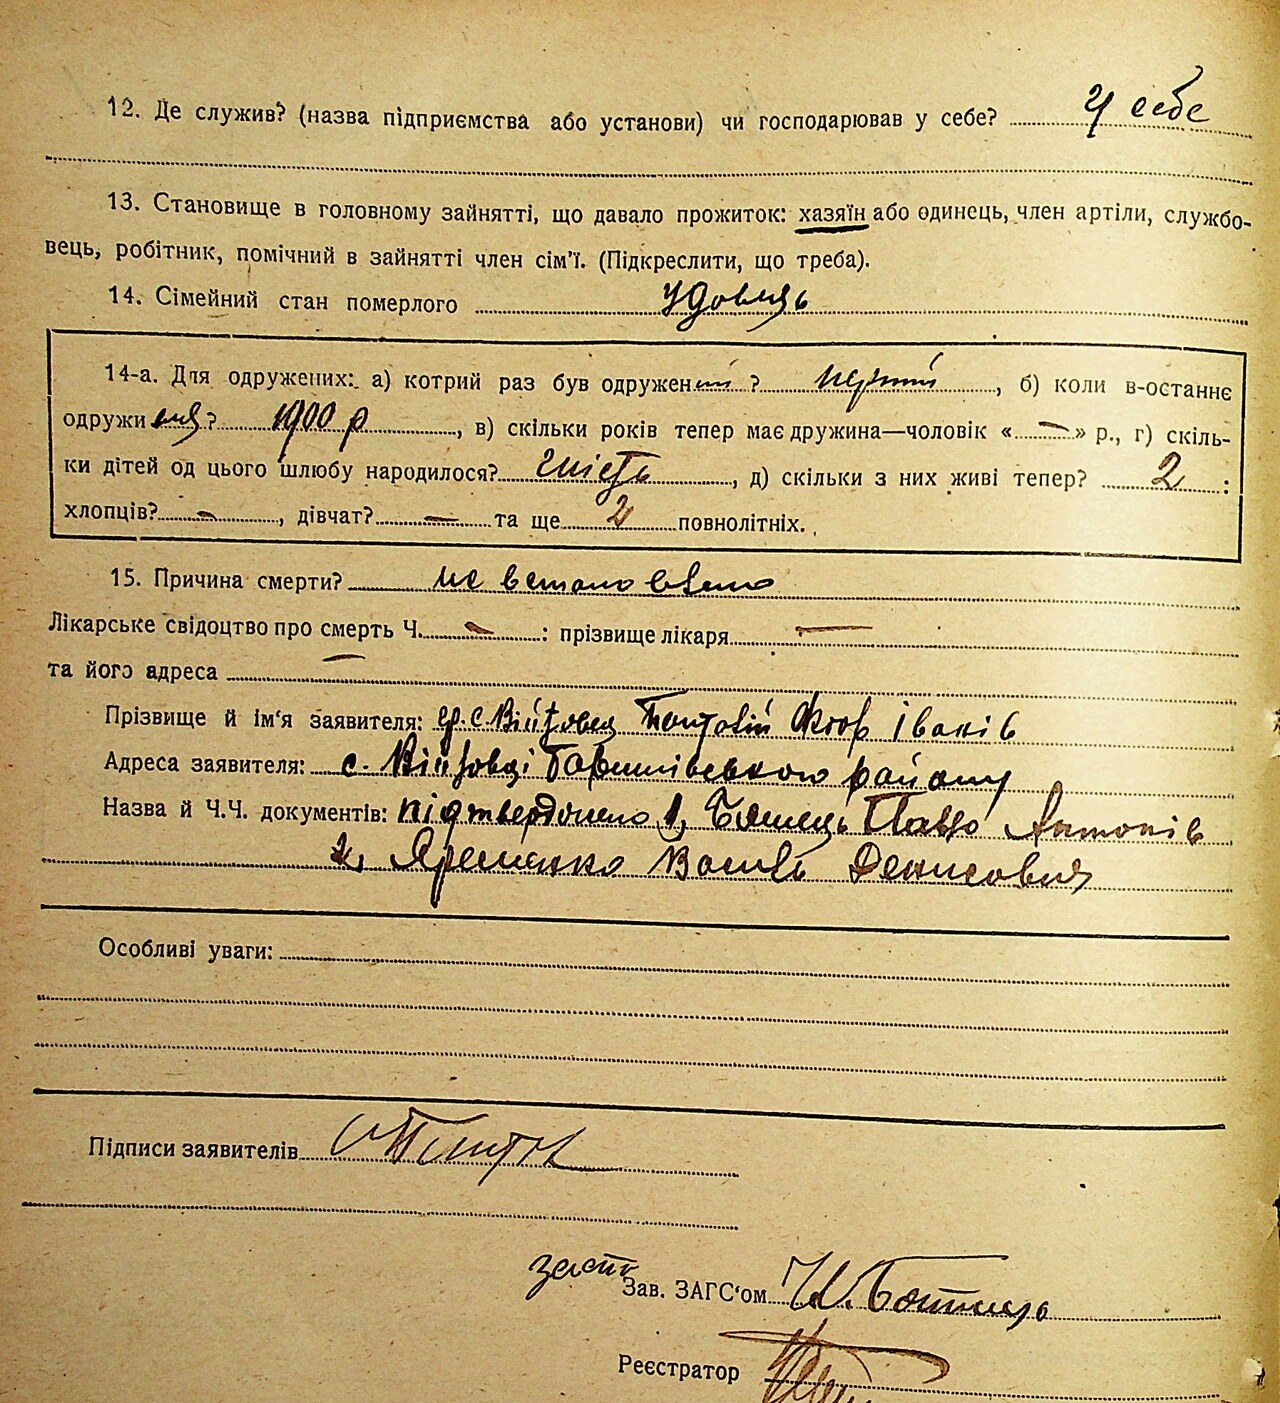 12. Де служив? (назва підприємства або установи) чи господарював у себе? у себе
13. Становище в головному зайнятті, що давало прожиток: хазяїн або одинець, член артіли, службо-
вець, робітник, помічний в зайнятті член сім'ї. (Підкреслити, що треба).
14. Сімейний стан померлого удовець
14-а. Для одружених: а) котрий раз був одружений? перший, б) коли в-останнє
одружився? 1900 р, в) скільки років тепер має дружина—чоловік «—» р., г) скіль-
ки дітей од цього шлюбу народилося? шість, д) скільки з них живі тепер? 2:
хлопців? —, дівчат? — та ще 2 повнолітніх.
15. Причина смерти? не встановлено
Лікарське свідоцтво про смерть Ч. —: прізвище лікаря —
та його адреса —
Прізвище й ім'я заявителя: гр. с. Війтовец Іванів
Адреса заявителя: с. Війтовці району
Назва й Ч.Ч. документів: підтверджено 1, Павло Антонів
2, Яременко Василь Денисович
Особливі уваги:
Підписи заявителів
заст
Зав. ЗАГС'ом
Реєстратор